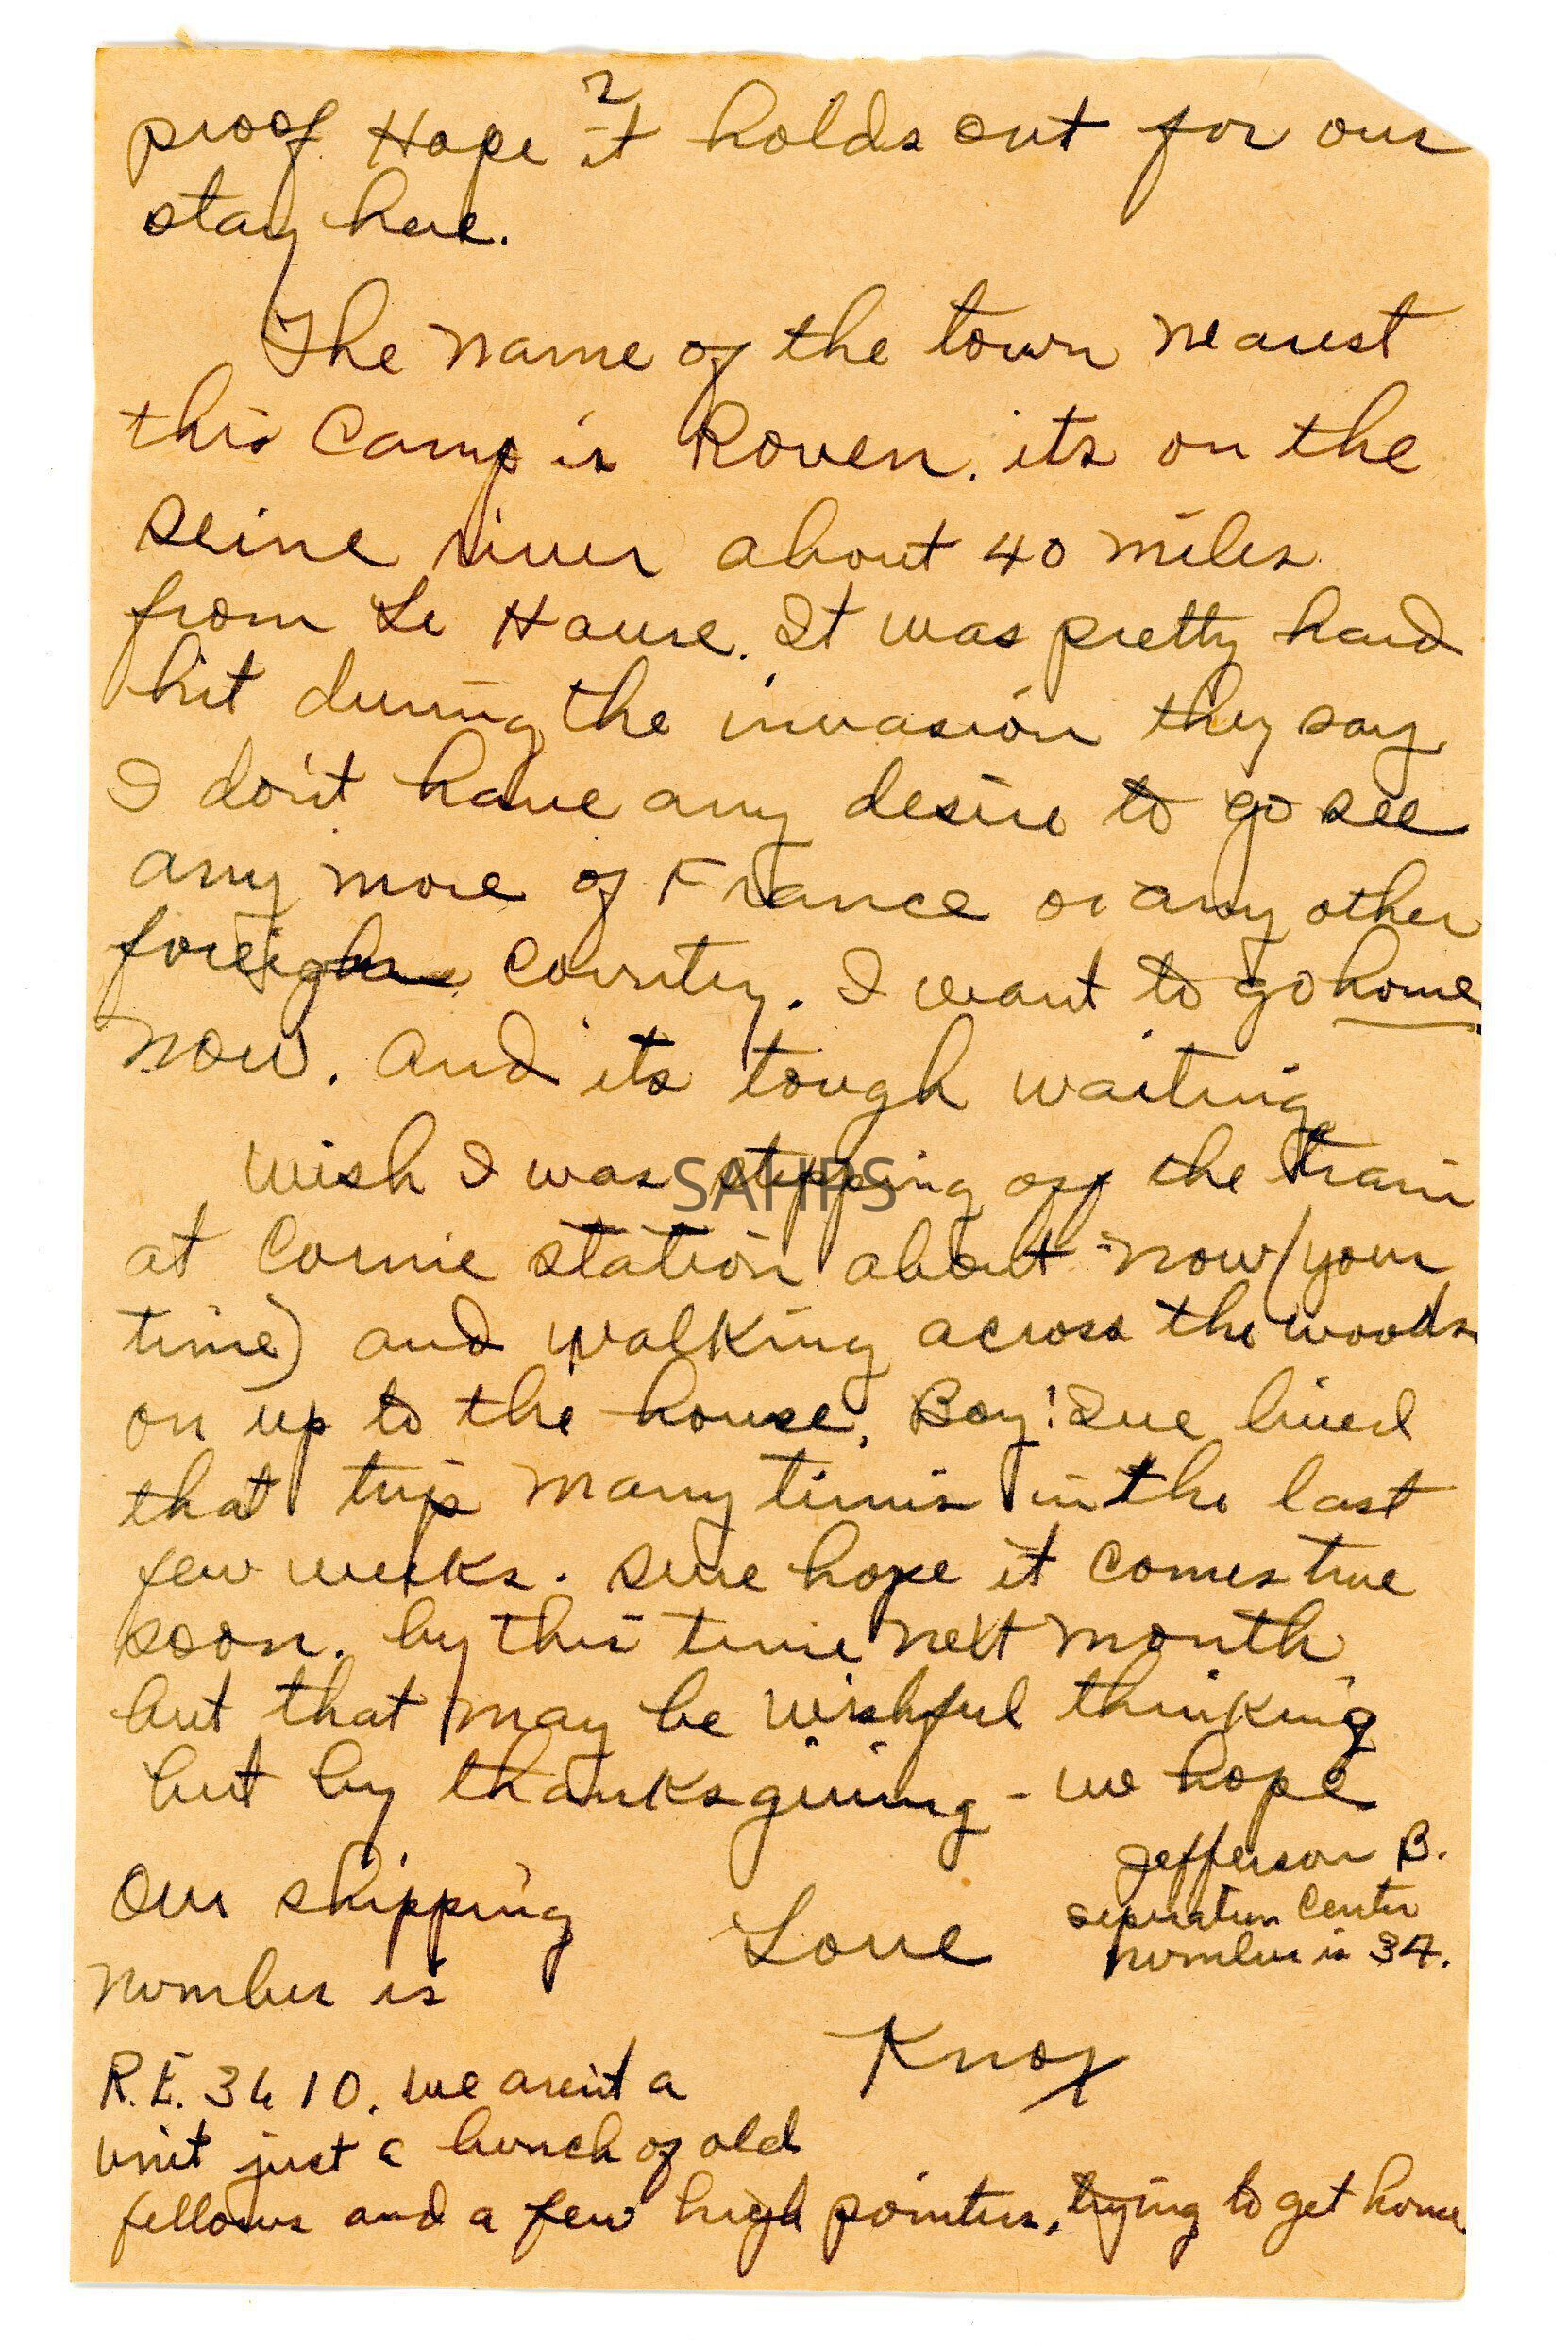 2
proof. Hope it holds out for our
stay here.
The name of the town nearest
this Camp is Rouen. its on the
Seine river about 40 miles
from Le Havre. It was pretty hard
hit during the invasion they say
I don't have any desire to go see
any more of France or any other
foreign country. I want to go home
now. and its tough waiting
Wish I was stepping off the train
at Corrie station about now (your
time) and walking across the woods
on up to the house. Boy! Ive lived
that trip many times in the last
few weeks. Sure hope it comes true
soon. by this time next month
but that may be wishful thinking
but by thanksgiving - we hope
Jefferson B.
seperation Center
number is 34.
Love
Knox
Our shipping
number is
R.E. 3410. We aren't a
unit just a bunch of old
fellows and a few high pointers, trying to get home
SAHPS